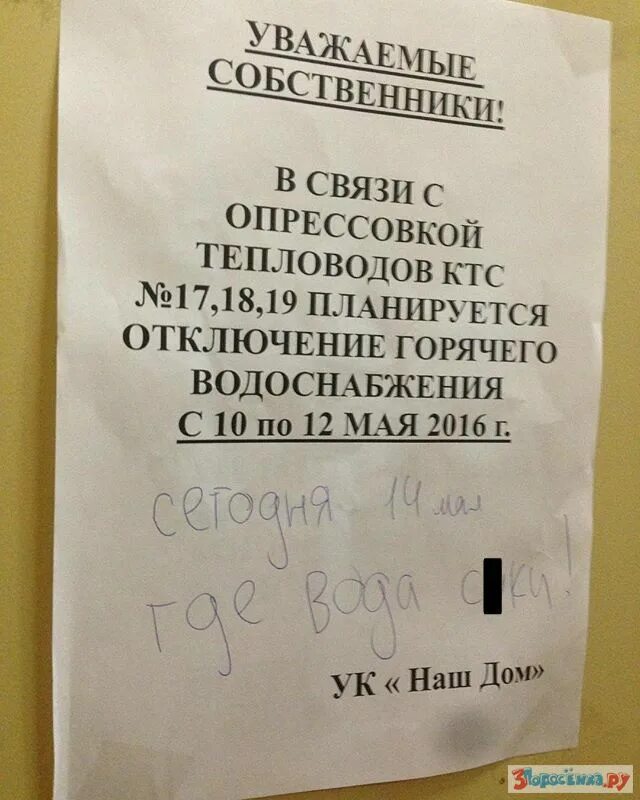 УВАЖАЕМЫЕ
СОБСТВЕННИКИ!
В СВЯЗИ С
ОПРЕССОВКОЙ
ТЕПЛОВОДОВ КТС
№17,18,19 ПЛАНИРУЕТСЯ
ОТКЛЮЧЕНИЕ ГОРЯЧЕГО
ВОДОСНАБЖЕНИЯ
С 10 по 12 МАЯ 2016 г.
сегодня - 14 мая
где вода с ки!
УК « Наш Дом»
3Поросёнка.ру